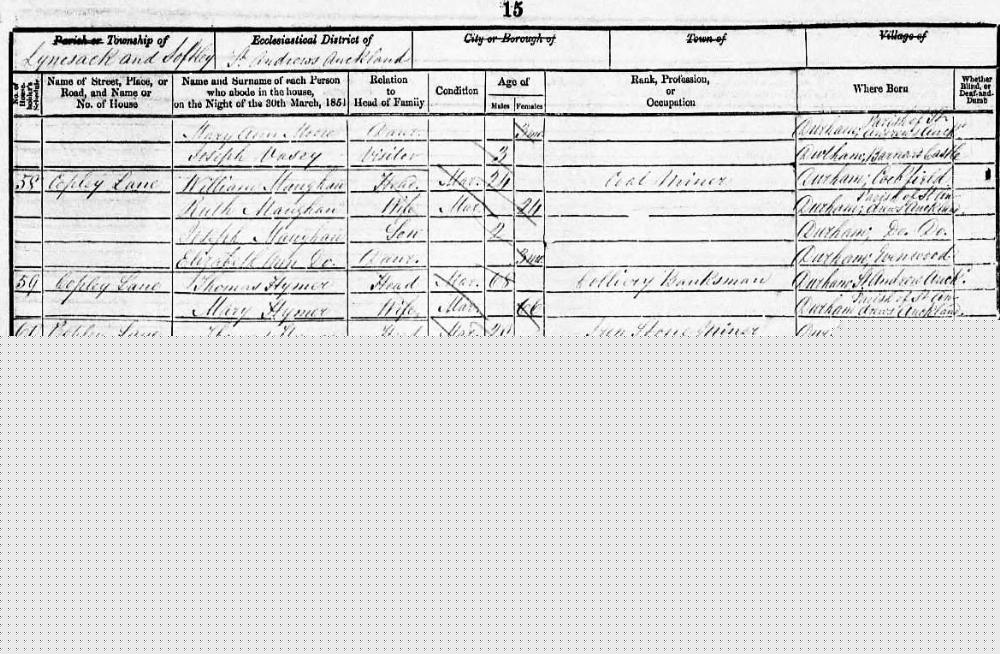 15
Parish or Township of Ecclesiastical District of City or Borough of Town of Village of
Lynesack and Softley St. Andrews Auckland
No. of House-holder's Schedule Name of Street, Place, or Road, and Name or No. of House Name and Surname of each Person who abode in the house, on the Night of the 30th March, 1851 Relation to Head of Family Condition Age of Males Females Rank, Profession, or Occupation Where Born Whether Blind, or Deaf-and-Dumb
Mary Ann Moore Daur. Durham; Parish of St. Andrews Auck
Joseph Vasey Visitor 3 Durham; Barnard Castle
58 Copley Lane William Maughan Head Mar. 24 Coal Miner Durham; Cockfield
Ruth Maughan Wife Mar. 24 Durham; Parish of St. An drews Auckland
Joseph Maughan Son 2 Durham; Do. Do.
Elizabeth Ann Do. Daur. Durham; Evenwood
59 Copley Lane Thomas Hymer Head Mar. 68 Colliery Banksman Durham St. Andrew Auck
Mary Hymer Wife Mar. 66 Durham Parish of St. An drews Auckland
Copley Lane Head Mar. Iron Stone Miner